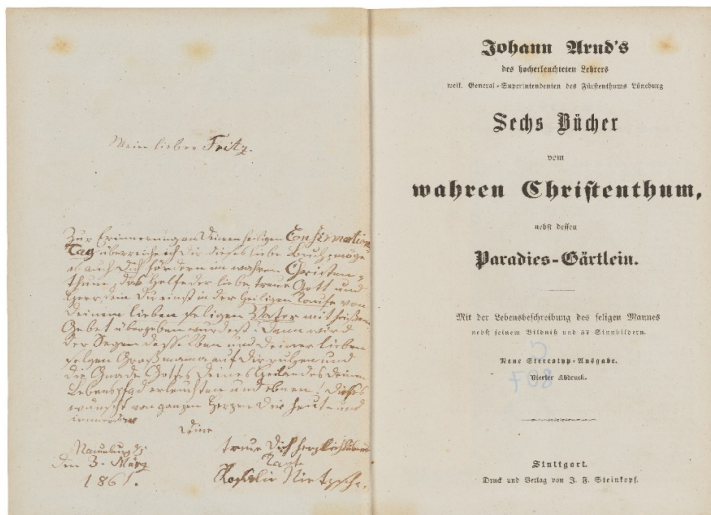 Mein lieber Fritz.
Zur Erinnerung an Deinen heiligen Confirmations
Tag überreiche ich dir dieses liebe Buch, möge
es auch Dich fördern im wahren Christen-
thum, das helfe der liebe treue Gott und
Herr, dem Du einst in der heiligen Taufe von
Deinem lieben seligen Vater mit heißem
Gebet übergeben wurdest. Dann wird
der Segen desselben und deiner lieben
seligen Großmama auf Dir ruhen und
die Gnade Gottes Deines Heilandes deinen
Lebenspfad erleuchten und ebnen! Dieses
wünscht von ganzem Herzen Dir heute und
immerdar
Deine
treue Dich herzlich liebende
Tante
Rosalie Nietzsche.
Naumburg d/
den 3. März
1861.
Johann Arnd's
des hocherleuchteten Lehrers
weil. General-Superintendenten des Fürstenthums Lüneburg
Sechs Bücher
vom
wahren Christenthum,
nebst dessen
Paradies-Gärtlein.
Mit der Lebensbeschreibung des seligen Mannes
nebst seinem Bildniß und 57 Sinnbildern.
Neue Stereotyp-Ausgabe.
Vierter Abdruck.
Stuttgart.
Druck und Verlag von J. F. Steinkopf.